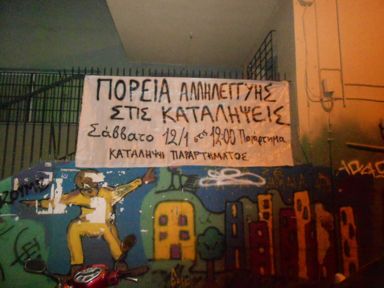 ΠΟΡΕΙΑ ΑΛΛΗΛΕΓΓΥΗΣ
ΣΤΙΣ ΚΑΤΑΛΗΨΕΙΣ
Σάββατο 12/1 στις 12:00 Παράρτημα
ΚΑΤΑΛΗΨΗ ΠΑΡΑΡΤΗΜΑΤΟΣ